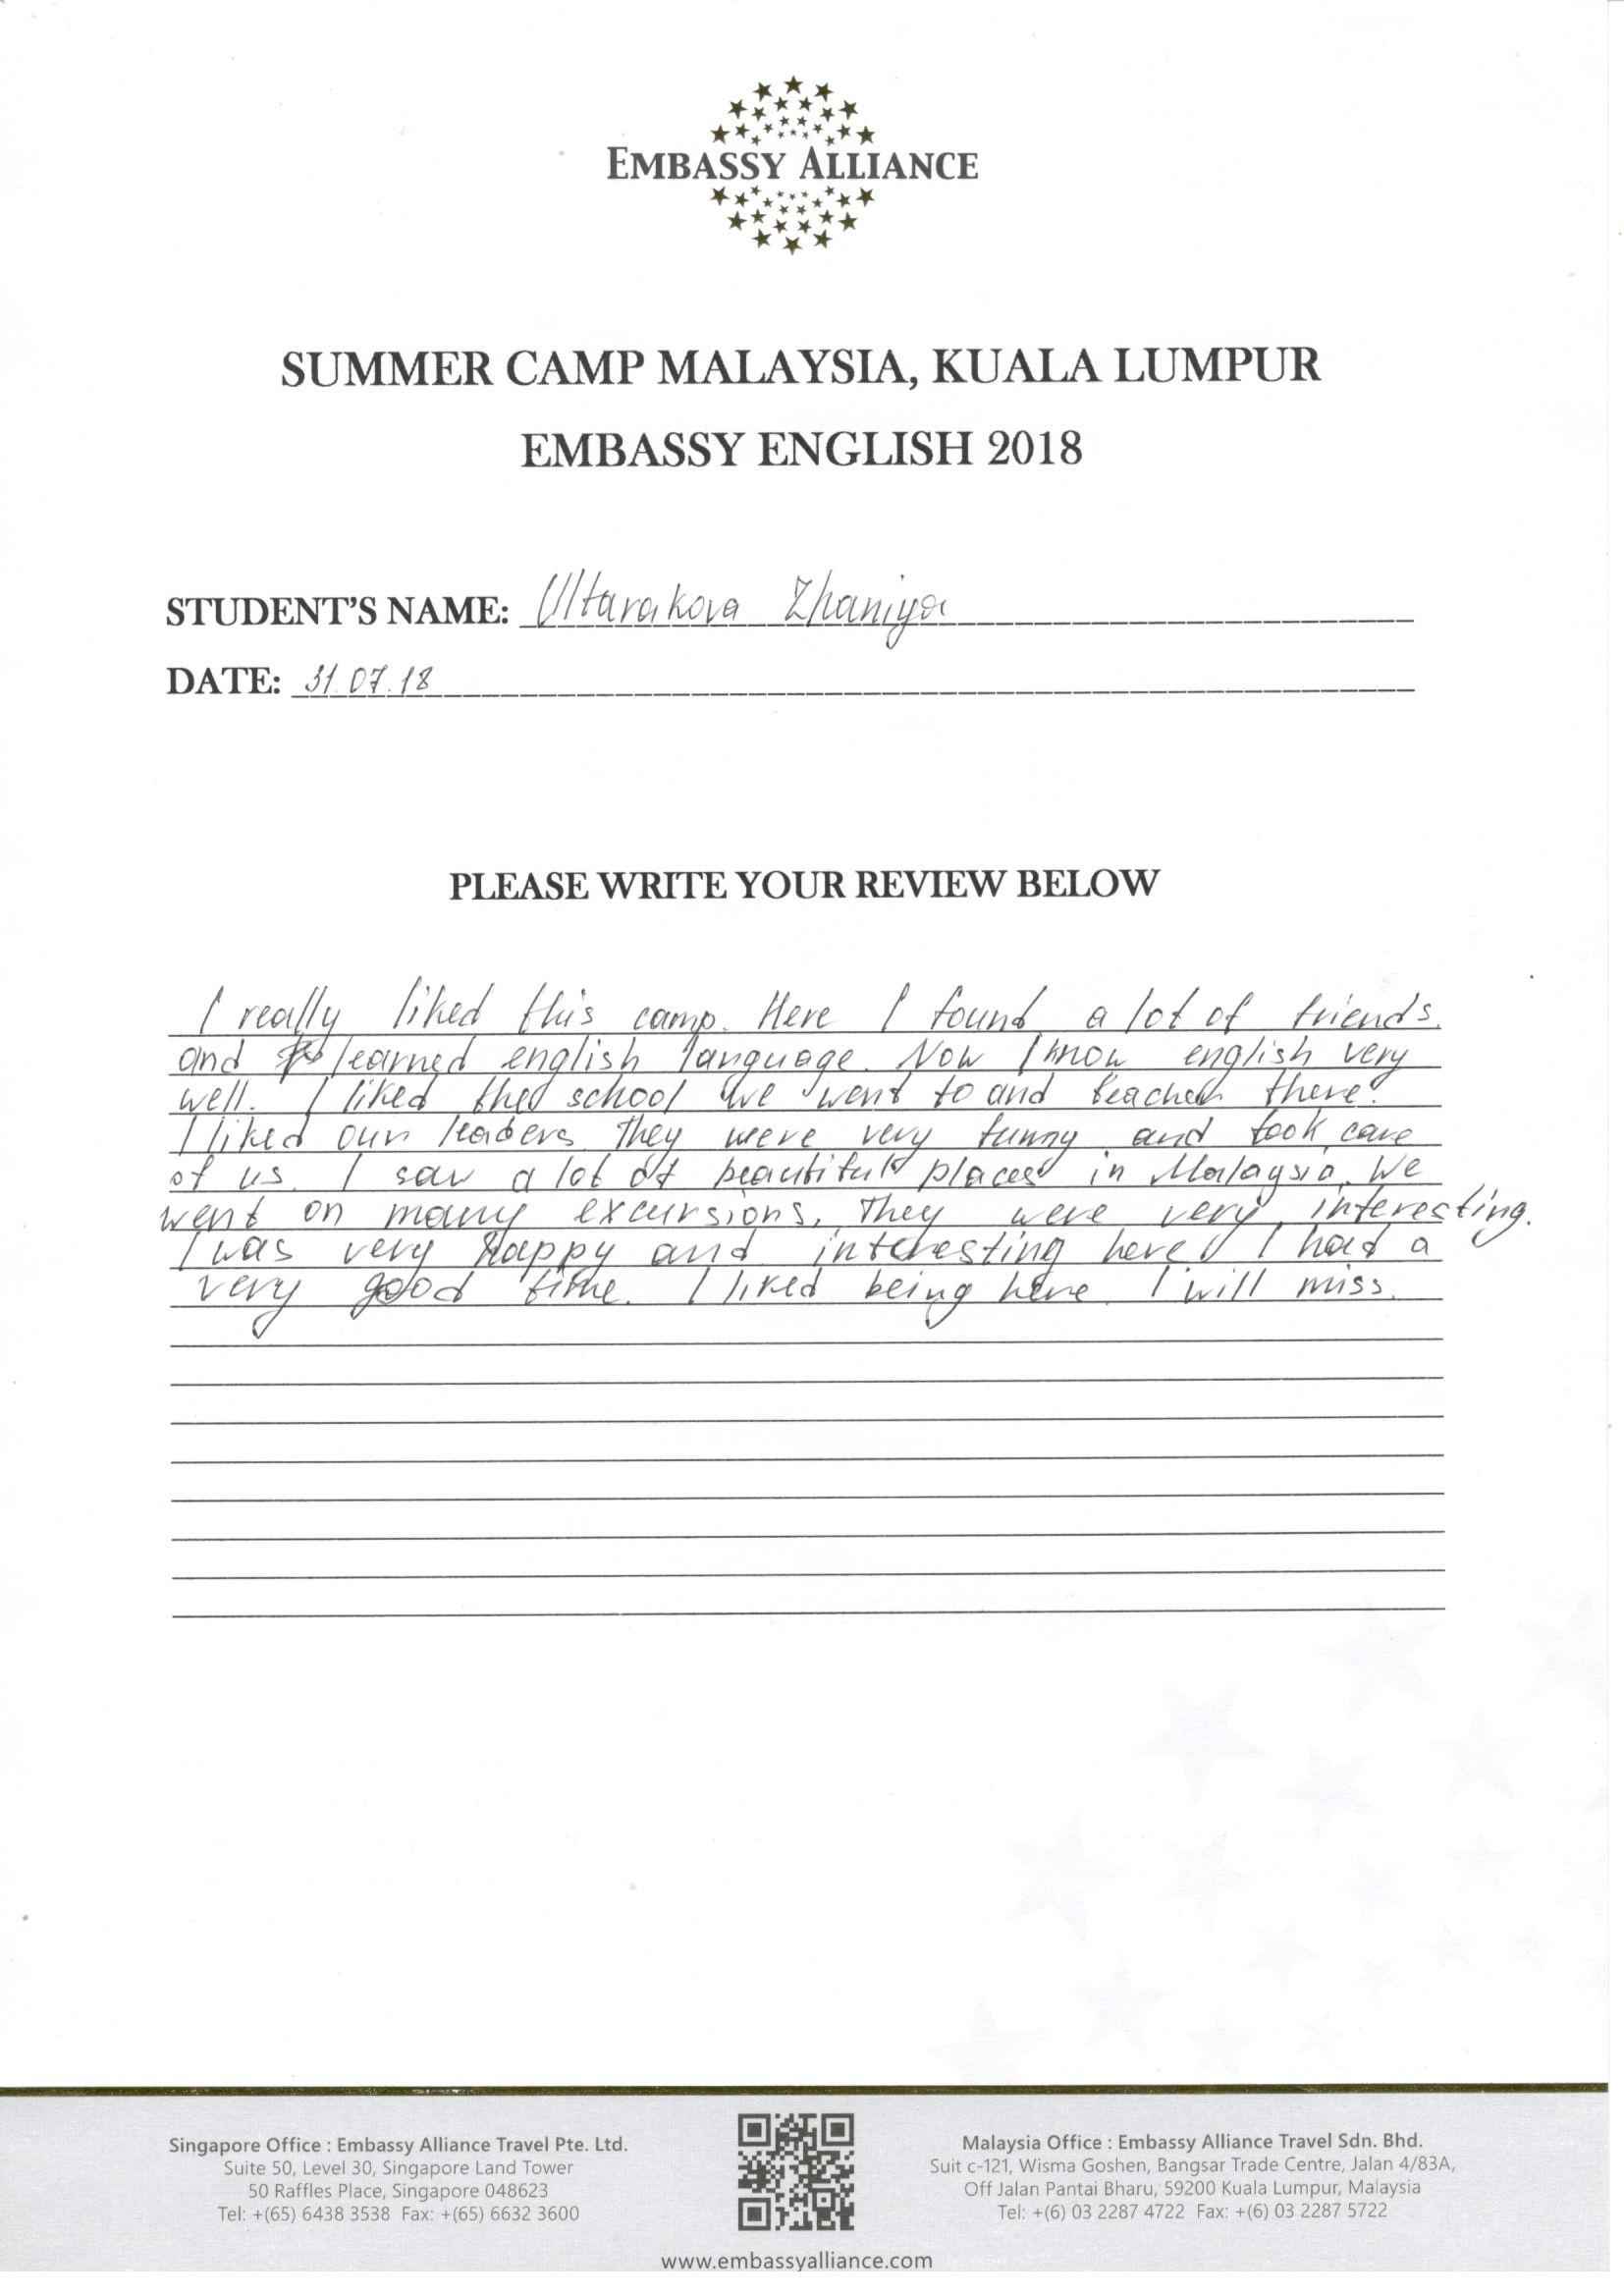 EMBASSY ALLIANCE
SUMMER CAMP MALAYSIA, KUALA LUMPUR
EMBASSY ENGLISH 2018
STUDENT'S NAME: Ultarakova Zhaniya
DATE: 31.07.18
PLEASE WRITE YOUR REVIEW BELOW
I really liked this camp. Here I found a lot of friends.
and learned english language. Now I know english very
well. I liked the school we went to and teacher there.
I liked our leaders. They were very funny and took care
of us. I saw a lot of beautiful places in Malaysia. We
went on many excursions. They were very interesting.
I was very happy and interesting here. I had a
very good time. I liked being here. I will miss.
Singapore Office : Embassy Alliance Travel Pte. Ltd.
Suite 50, Level 30, Singapore Land Tower
50 Raffles Place, Singapore 048623
Tel: +(65) 6438 3538 Fax: +(65) 6632 3600
Malaysia Office : Embassy Alliance Travel Sdn. Bhd.
Suit c-121, Wisma Goshen, Bangsar Trade Centre, Jalan 4/83A,
Off Jalan Pantai Bharu, 59200 Kuala Lumpur, Malaysia
Tel: +(6) 03 2287 4722 Fax: +(6) 03 2287 5722
www.embassyalliance.com